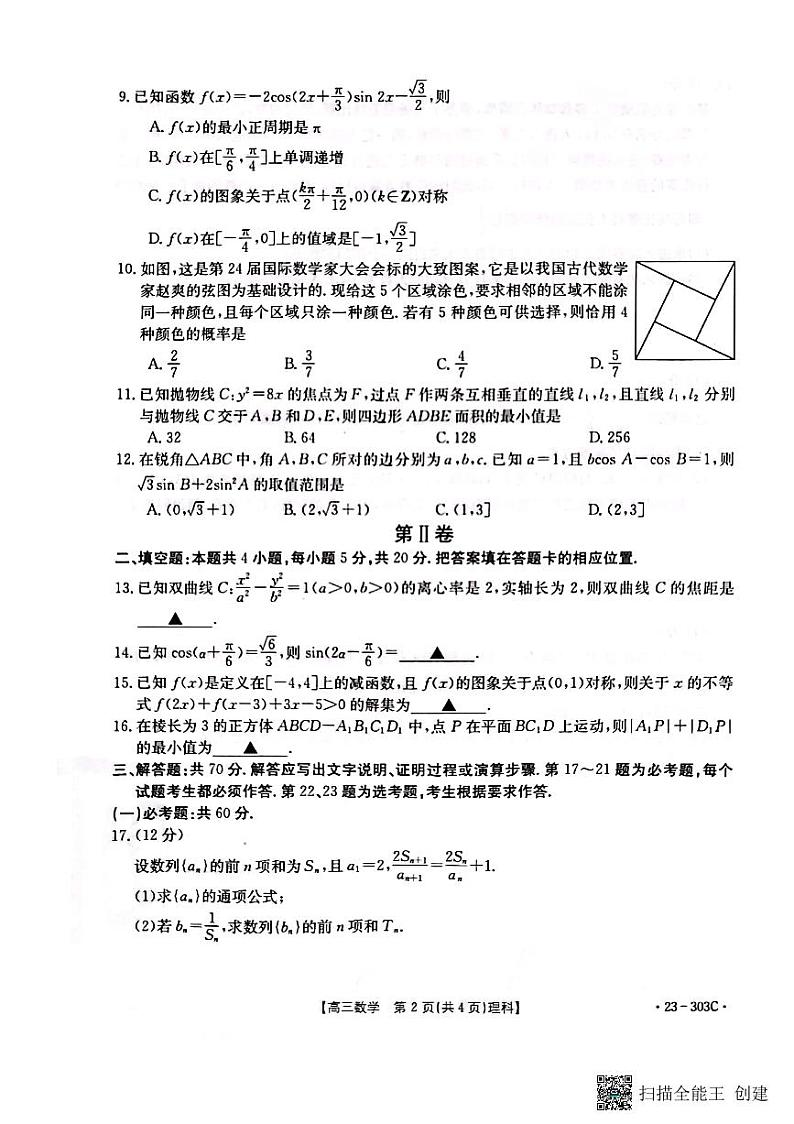 9.已知函数 f(x)=-2cos(2x+π/3)sin 2x-√3/2,则
A. f(x)的最小正周期是 π
B. f(x)在[π/6,π/4]上单调递增
C. f(x)的图象关于点(kπ/2+π/12,0)(k∈Z)对称
D. f(x)在[-π/4,0]上的值域是[-1,√3/2]
10.如图,这是第 24 届国际数学家大会会标的大致图案,它是以我国古代数学
家赵爽的弦图为基础设计的.现给这 5 个区域涂色,要求相邻的区域不能涂
同一种颜色,且每个区域只涂一种颜色.若有 5 种颜色可供选择,则恰用 4
种颜色的概率是
A. 2/7 B. 3/7 C. 4/7 D. 5/7
11.已知抛物线 C:y²=8x 的焦点为 F,过点 F 作两条互相垂直的直线 l₁,l₂,且直线 l₁,l₂ 分别
与抛物线 C 交于 A,B 和 D,E,则四边形 ADBE 面积的最小值是
A. 32 B. 64 C. 128 D. 256
12.在锐角△ABC 中,角 A,B,C 所对的边分别为 a,b,c.已知 a=1,且 bcos A-cos B=1,则
√3sin B+2sin²A 的取值范围是
A. (0,√3+1) B. (2,√3+1) C. (1,3] D. (2,3]
第Ⅱ卷
二、填空题:本题共 4 小题,每小题 5 分,共 20 分.把答案填在答题卡的相应位置.
13.已知双曲线 C:x²/a²-y²/b²=1(a>0,b>0)的离心率是 2,实轴长为 2,则双曲线 C 的焦距是
▲.
14.已知 cos(α+π/6)=√6/3,则 sin(2α-π/6)=▲.
15.已知 f(x)是定义在[-4,4]上的减函数,且 f(x)的图象关于点(0,1)对称,则关于 x 的不等
式 f(2x)+f(x-3)+3x-5>0 的解集为▲.
16.在棱长为 3 的正方体 ABCD-A₁B₁C₁D₁ 中,点 P 在平面 BC₁D 上运动,则|A₁P|+|D₁P|
的最小值为▲.
三、解答题:共 70 分.解答应写出文字说明、证明过程或演算步骤.第 17~21 题为必考题,每个
试题考生都必须作答.第 22、23 题为选考题,考生根据要求作答.
(一)必考题:共 60 分.
17.(12 分)
设数列{aₙ}的前 n 项和为 Sₙ,且 a₁=2,2Sₙ₊₁/aₙ₊₁=2Sₙ/aₙ+1.
(1)求{aₙ}的通项公式;
(2)若 bₙ=1/Sₙ,求数列{bₙ}的前 n 项和 Tₙ.
【高三数学 第 2 页(共 4 页)理科】 ·23-303C·
扫描全能王 创建